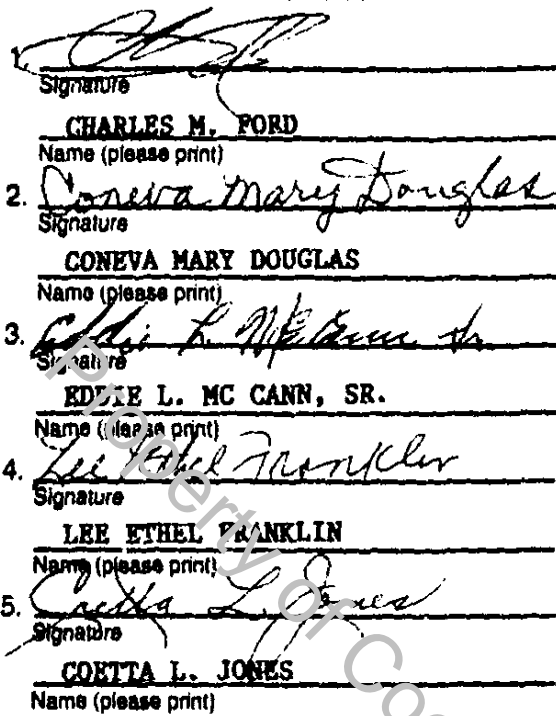 1.
Signature
CHARLES M. FORD
Name (please print)
2. Coneva Mary Douglas
Signature
CONEVA MARY DOUGLAS
Name (please print)
3. Eddie L. McCann Sr
Signature
EDDIE L. MC CANN, SR.
Name (please print)
4. Lee Ethel Franklin
Signature
LEE ETHEL FRANKLIN
Name (please print)
5. Coetta L. Jones
Signature
COETTA L. JONES
Name (please print)
Property of Coo